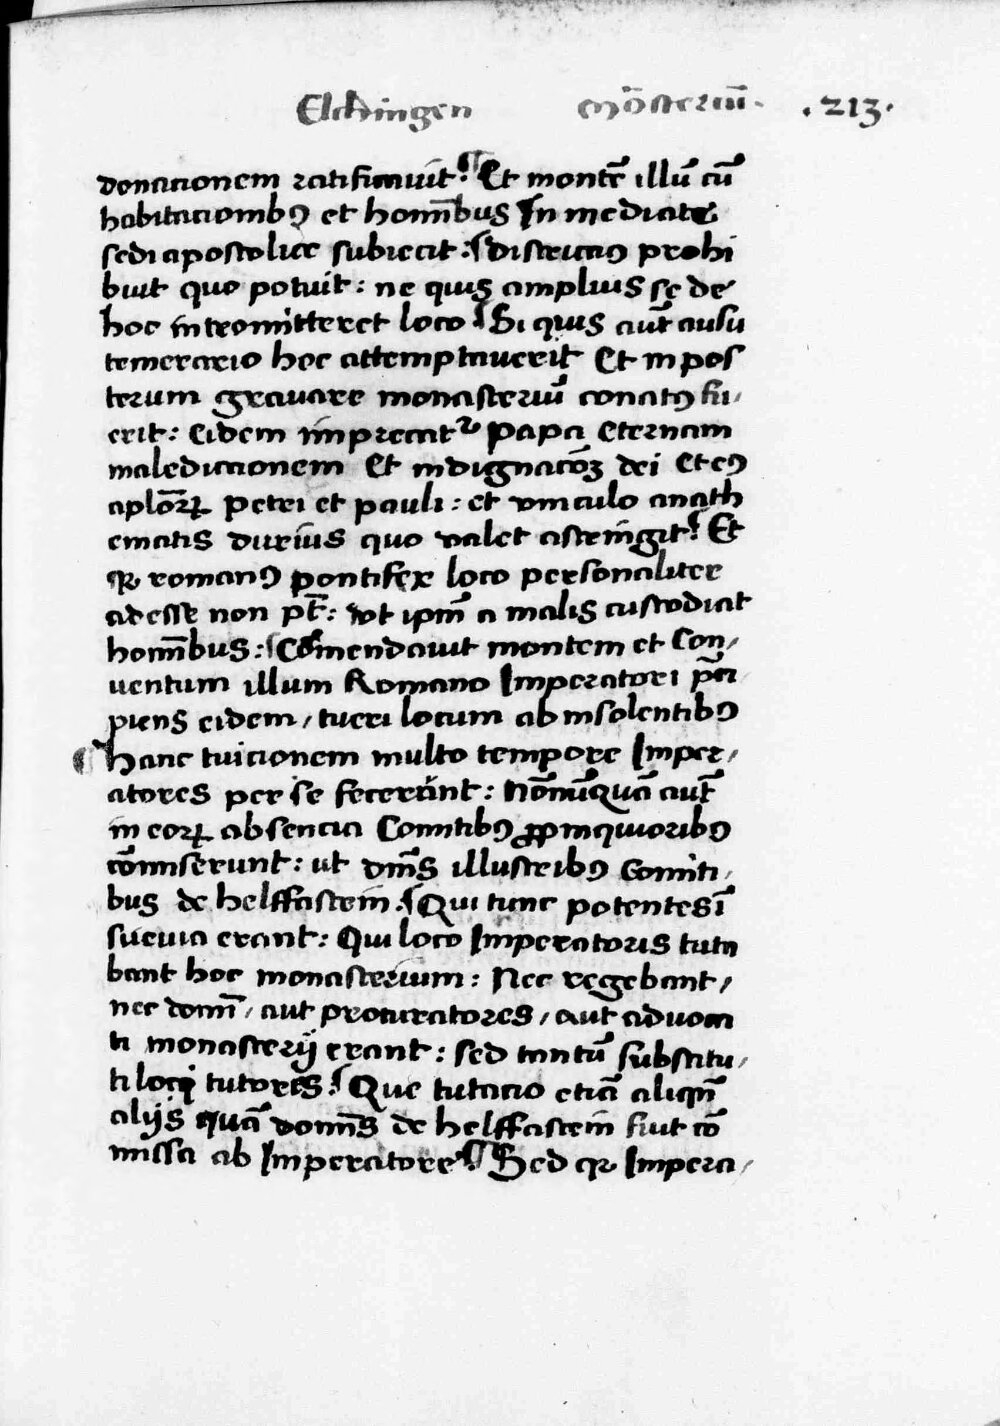 Elchingen mōsteriū. .213.
donacionem ratificavit: ¶ Et montē illū cū
habitacionibꝰ et hoīnībus In mediate
sedi apostolice subiecit: ¶ districtiꝰ prohi
buit quo potuit: ne quis amplius se de
hoc intromitteret loco ¶ Si quis aūt ausu
temerario hoc attemptauerit Et in pos
terum grauare monasteriū conatꝰ fu,
erit: Eidem imprecatᷣ Papa Eternam
maledictionem Et indignacōꝫ dei Et eꝰ
aplōꝝ Petri et pauli: et vinculo anath
ematis durius quo valet astringit: ¶ Et
qꝛ romanꝰ pontifex loco personaliter
adesse non pt̄: vt ipm̄ a malis custodiat
hoīnībus: ¶ Cōmendauit montem et Con,
uentum illum Romano Imperatori p̄ci
piens eidem, tueri locum ab insolentibꝰ
¶ Hanc tuicionem multo tempore Imper,
atores per se fecerūnt: Nōnūnquā aūt
in eoꝝ absencia Comitibꝰ ꝓpinquioribꝰ
cōmiserunt: ut dīnīs illustribꝰ Comiti,
bus de helffastein. ¶ Qui tunc potentes ī
sueuia erant: Qui loco Imperatoris tuta
bant hoc monasterium: Nec regebant,
nec domī, aut procuratores, aut aduoca
ti monasterij erant: sed tantū substitu,
ti loci tutores: ¶ Que tutacio etiā aliqn̄
alijs quā domīs de helffastein fuit cō
missa ab Imperatore: ¶ Sed qꝛ Impera,